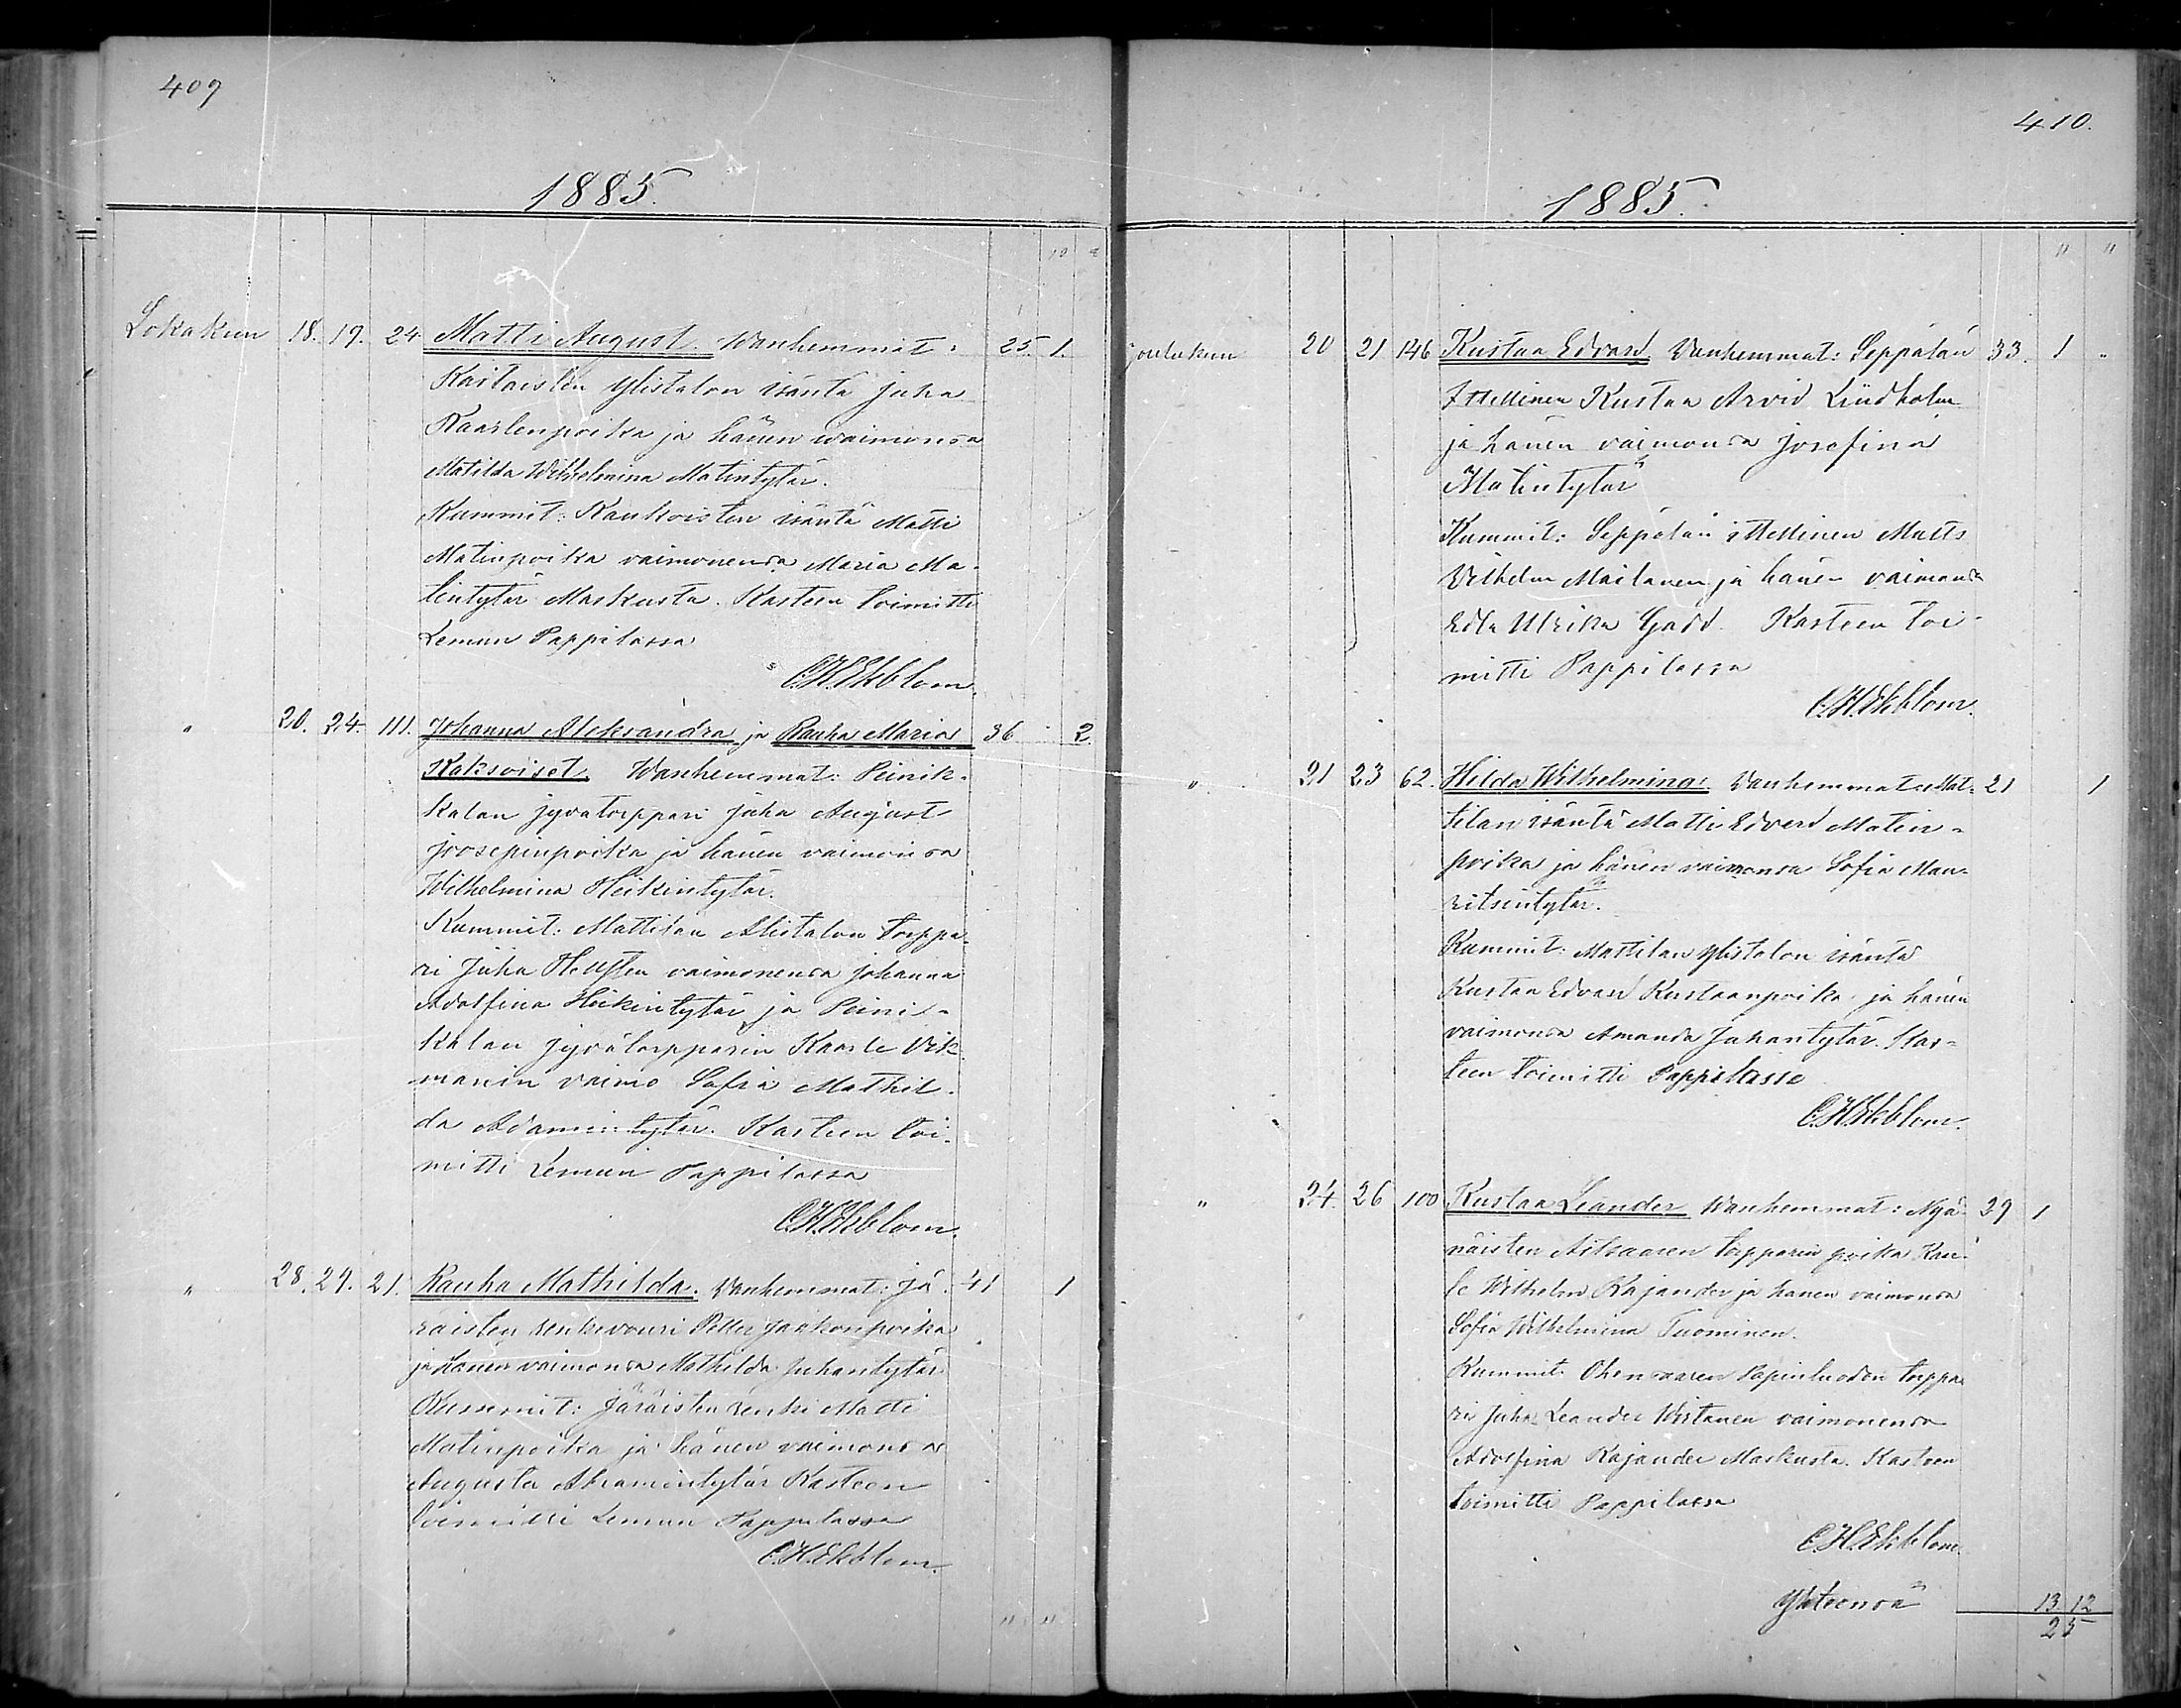 409
1885.
Lokakuu 18. 19. 24 Matti August Wanhemmat: 25. 1.
Kaitaisten Ylistalon isäntä Juha
Kaarlenpoika ja hänen waimonsa
Matilda Wilhelmina Matintytär.
Kummit: Kankoisten isäntä Matti
Matinpoika vaimonensa Maria Ma-
tintytär Maskusta. Kasteen toimitti
Lemun Pappilassa
C.H.Ekblom.
" 20. 24. 111. Johanna Aleksandra ja Rauha Maria 36 2.
Kaksoiset. Wanhemmat: Peinik-
kalan jyvätorppari Juha August
Joosepinpoika ja hänen vaimonsa
Wilhelmina Heikintytär.
Kummit: Mattilan Alistalon torppa-
ri Juha Hellsten vaimonensa Johanna
Adolfina Heikintytär ja Peini-
kalan jyvätorpparin Kaarle Vik-
manin vaimo Sofia Mathil-
da Adamintytär. Kasteen toi-
mitti Lemun Pappilassa
C.H.Ekblom.
" 28. 29. 21. Rauha Mathilda. Vanhemmat: Jä- 41 1
räisten renkivouri Petter Jaakonpoika
ja hänen vaimonsa Mathilda Juhantytär
Kummit: Järäisten renki Matti
Matinpoika ja hänen vaimonsa
Augusta Abramintytär Kasteen
toimitti Lemun Pappilassa
C.H.Ekblom.
" "
410.
1885.
" "
Joulukuu 20 21 146 Kustaa Edvard Vanhemmat: Seppälän 33. 1 "
Ittellinen Kustaa Arvid Lindholm
ja hänen vaimonsa Josefina
Matintytär
Kummit: Seppälän ittellinen Matts
Vilhelm Mailanen ja hänen vaimonsa
Edla Ulrika Gadd. Kasteen toi-
mitti Pappilassa
C.H.Ekblom.
" 21 23 62. Hilda Wilhelmina: Vanhemmat: Mat- 21 1
tilan isäntä Matti Edvard Matin-
poika ja hänen vaimonsa Sofia Mau-
ritsintytär.
Kummit: Mattilan Ylistalon isäntä
Kustaa Edvard Kustaanpoika ja hänen
vaimonsa Amanda Juhantytär. Kas-
teen toimitti Pappilassa
C.H.Ekblom.
" 24. 26 100 Kustaa Leander Wanhemmat: Nyä- 29 1
näisten Aitsaaren torpparin poika Kaar-
le Wilhelm Kajander ja hänen vaimonsa
Sofia Wilhelmina Tuominen.
Kummit: Ohensaaren Papinluodon torppa-
ri Juha Leander Virtanen vaimonensa
Adolfina Kajander Maskusta. Kasteen
toimitti Pappilassa
C.H.Ekblom.
Yhteensä 13. 12
25